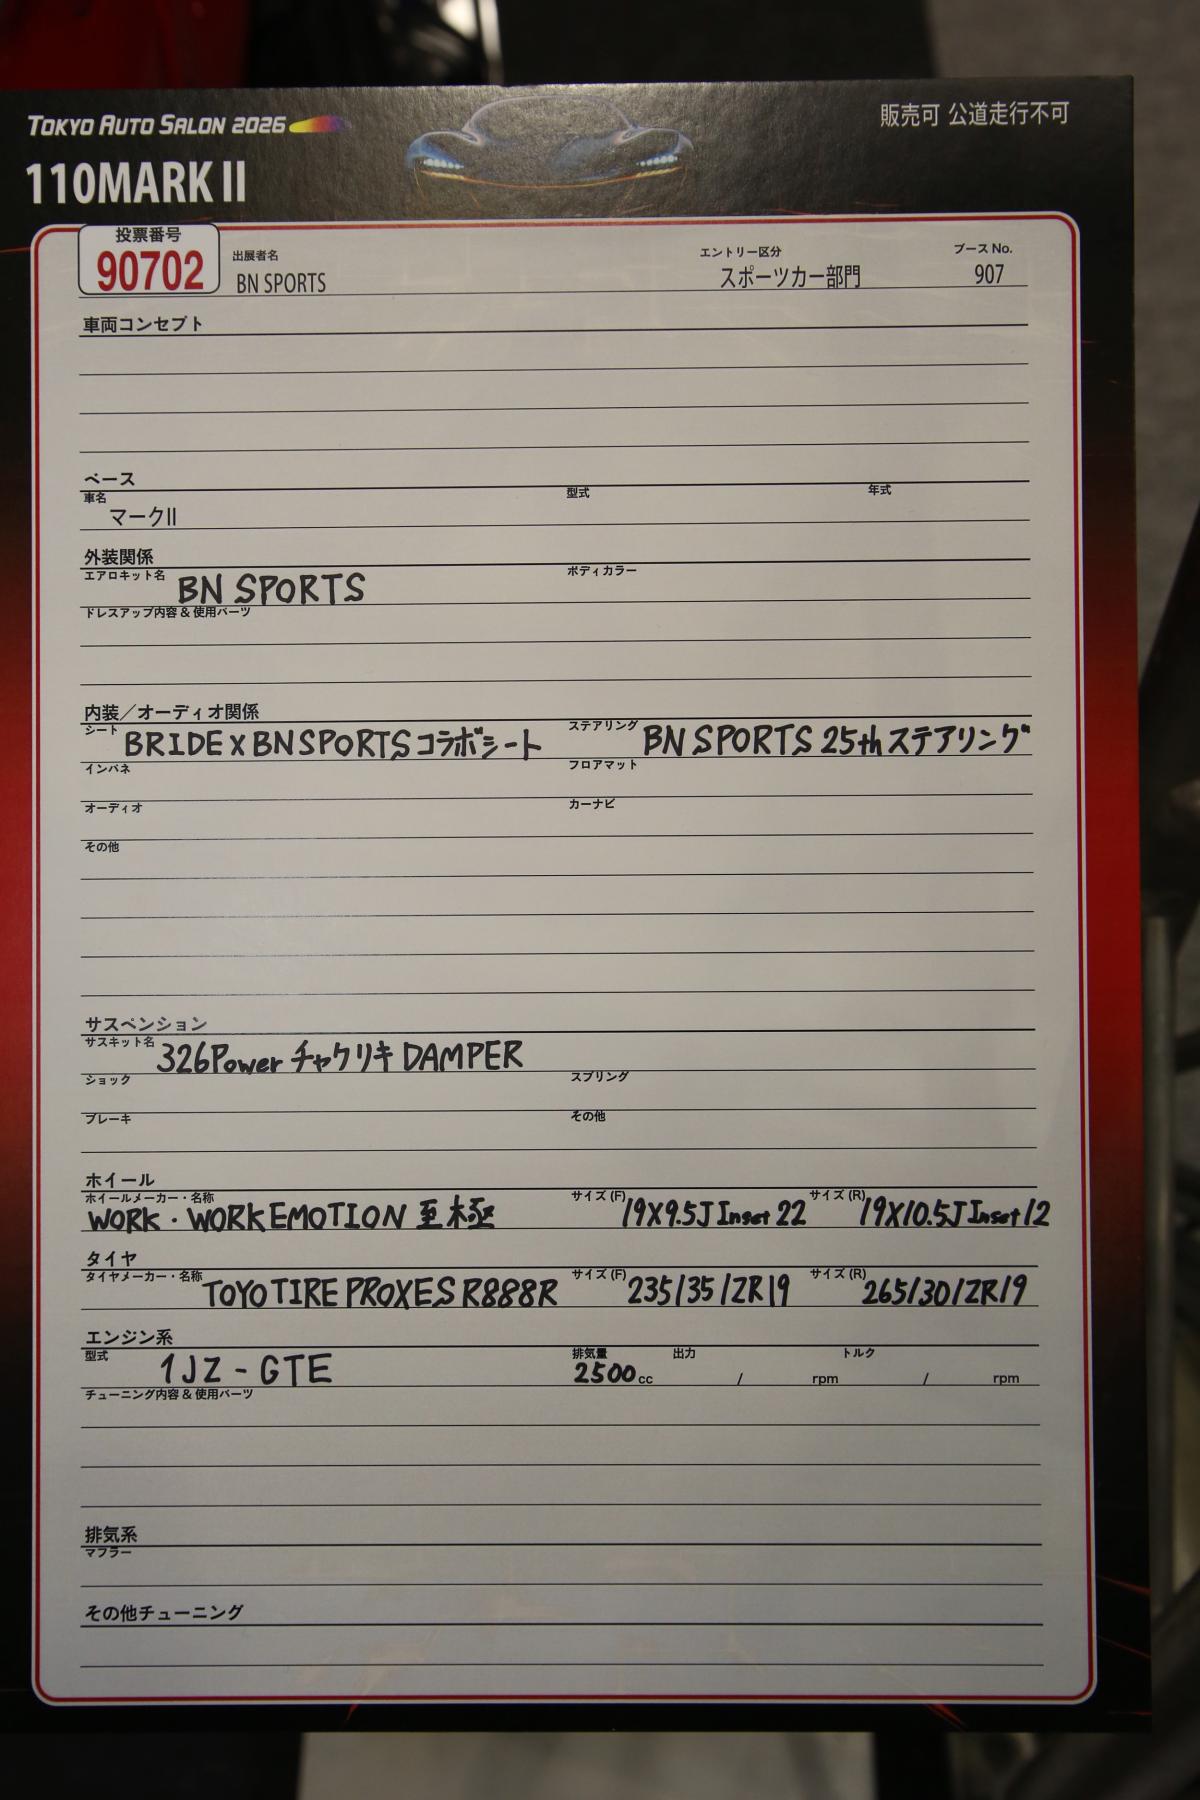 TOKYO AUTO SALON 2026
販売可 公道走行不可
110MARK II
投票番号
90702
出展者名
BN SPORTS
エントリー区分
スポーツカー部門
ブース No.
907
車両コンセプト
ベース
車名 型式 年式
マークII
外装関係
エアロキット名 BN SPORTS ボディカラー
ドレスアップ内容 & 使用パーツ
内装/オーディオ関係
シート BRIDE X BN SPORTS コラボシート ステアリング BN SPORTS 25th ステアリング
インパネ フロアマット
オーディオ カーナビ
その他
サスペンション
サスキット名 326Power チャクリキ DAMPER
ショック スプリング
ブレーキ その他
ホイール
ホイールメーカー・名称 WORK・WORK EMOTION 至極 サイズ (F) 19X9.5J Inset 22 サイズ (R) 19X10.5J Inset 12
タイヤ
タイヤメーカー・名称 TOYO TIRE PROXES R888R サイズ (F) 235/35/ZR19 サイズ (R) 265/30/ZR19
エンジン系
型式 1JZ-GTE 排気量 2500 cc 出力 / rpm トルク / rpm
チューニング内容 & 使用パーツ
排気系
マフラー
その他チューニング